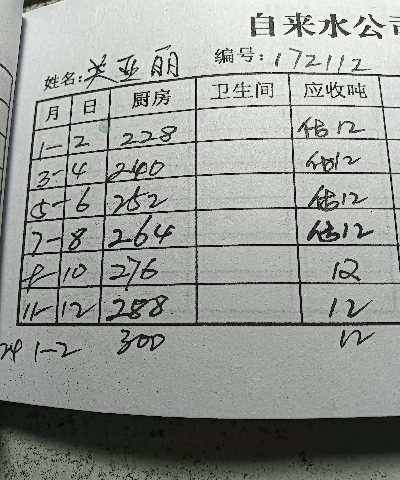 自来水公司
姓名: 关亚丽 编号: 172112
月 日 厨房 卫生间 应收吨
1-2 228 估12
3-4 240 估12
5-6 252 估12
7-8 264 估12
9-10 276 12
11-12 288 12
24 1-2 300 12